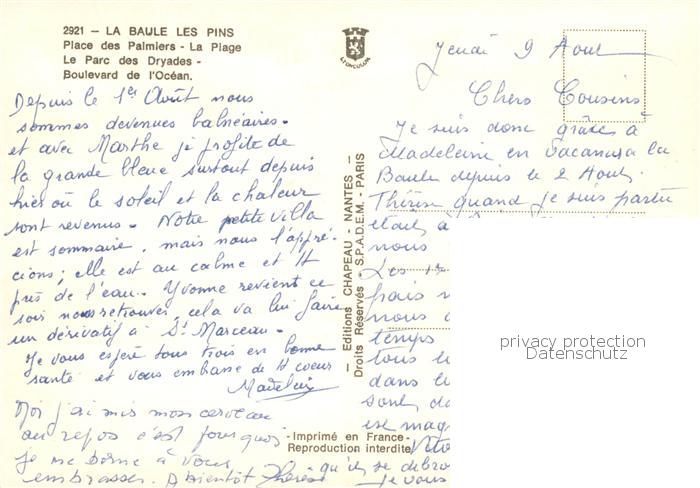 2921 — LA BAULE LES PINS
Place des Palmiers - La Plage
Le Parc des Dryades -
Boulevard de l'Océan.
LYONCOLOR
Depuis le 1er Août nous
sommes devenues balnéaires -
et avec Marthe je profite de
la grande bleue surtout depuis
hier où le soleil et la chaleur
sont revenus - Notre petite villa
est sommaire, mais nous l'appré-
cions ; elle est au calme et tt
près de l'eau. Yvonne revient ce
soir nous retrouver, cela va lui faire
un dérivatif à St. Marceau -
Je vous espère tous trois en bonne
santé et vous embrasse de tt coeur
Madeleine
Moi j'ai mis mon cerveau
au repos c'est pourquoi
je me borne à vous
embrasser. A bientôt Thérèse
— Editions CHAPEAU - NANTES —
Droits Réservés - S.P.A.D.E.M. - PARIS
-Imprimé en France-
Reproduction interdite
Jeudi 9 Aout
Chers Cousins
Je suis donc grâce à
Madeleine en vacances à la
Baule depuis le 2 Aout.
Thérèse quand je suis partie
était à
nous
Les
frais
nous
temps
tous le
dans le
sont, da
se mag
qu'ils se débro
Je vous
privacy protection
Datenschutz